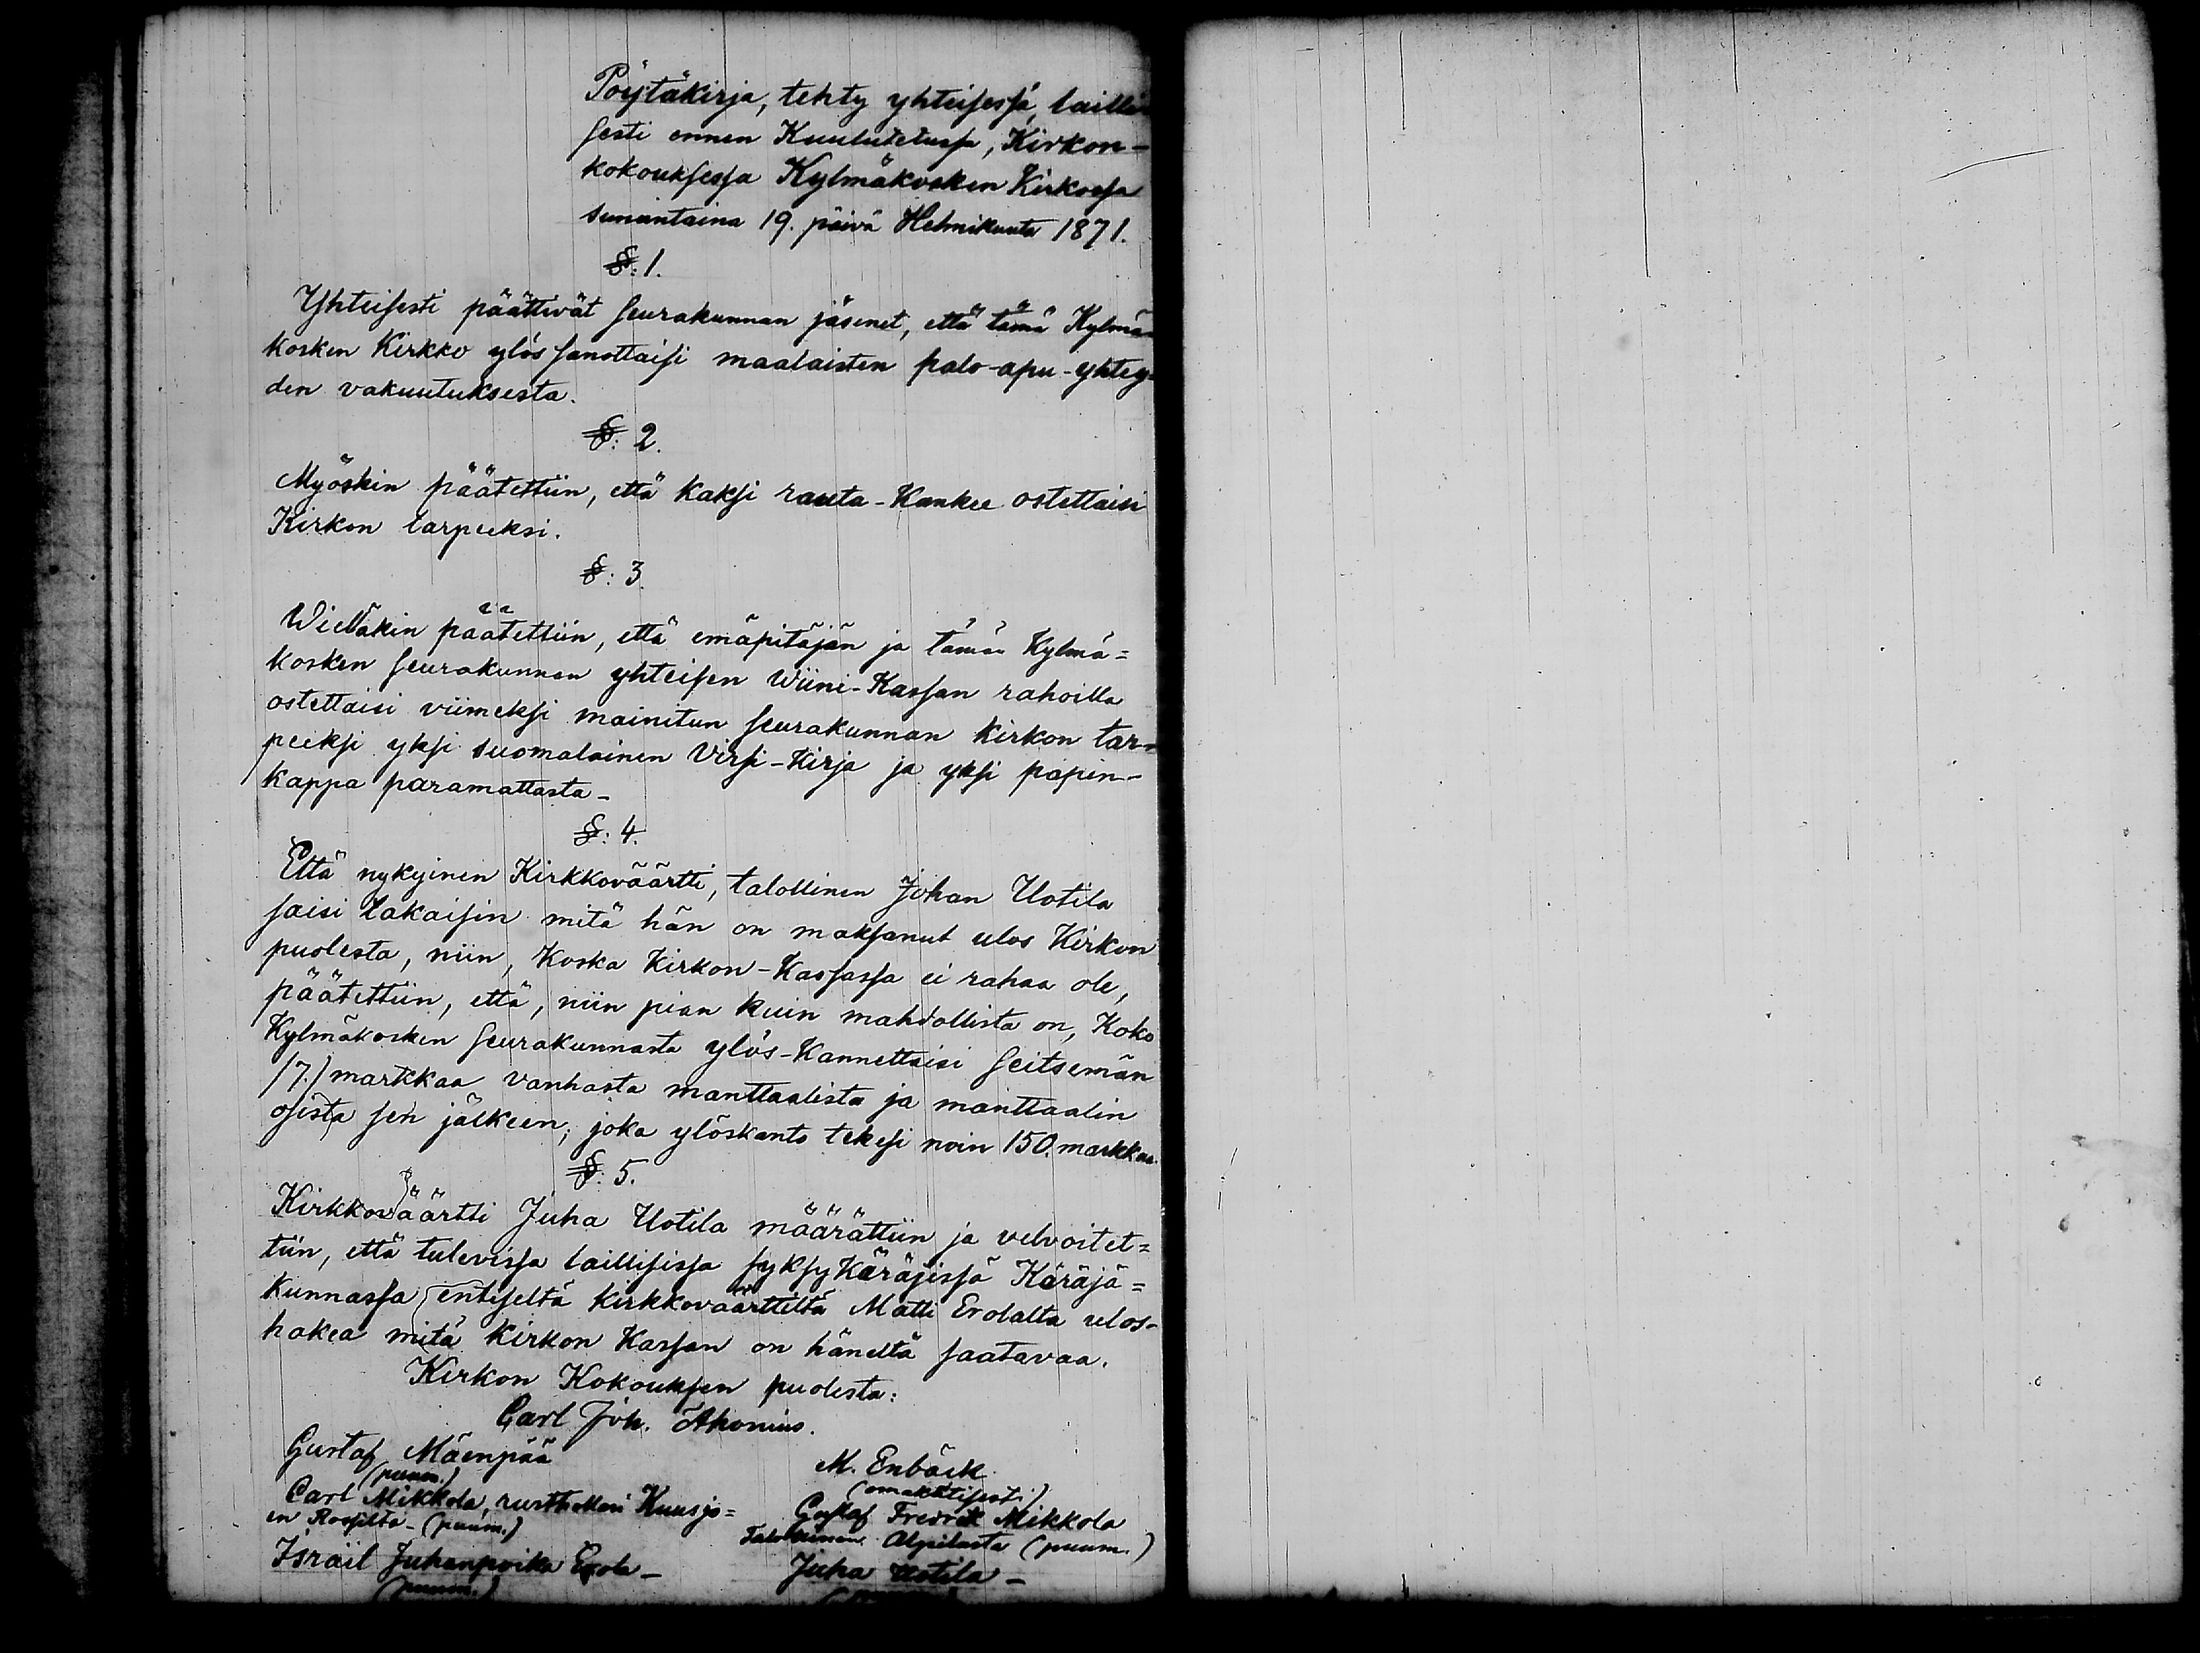 Pöytäkirja, tehty yhteisessä, lailli
sesti ennen Kuulutetussa, Kirkon-
kokouksessa Kylmäkosken Kirkossa
sunnintaina 19. päivä Helmikuuta 1871.
§: 1.
Yhteisesti päättivät seurakunnan jäsenet, että tämä Kylmä=
kosken Kirkko ylös sanottaisi maalaisten palo-apu-yhtey=
den vakuutuksesta.
§: 2.
Myöskin päätettiin, että kaksi rauta-Kankee ostettaisi
Kirkon tarpeeksi.
§: 3
Wieläkin päätettiin, että emäpitäjän ja tämän Kylmä=
kosken seurakunnan yhteisen Wiini-Kassan rahoilla
ostettaisi viimeksi mainitun seurakunnan kirkon tar=
peeksi yksi suomalainen Virsi-Kirja ja yksi papin-
kappa paramattasta-
§: 4.
Että nykyinen Kirkkoväärtti, talollinen Johan Uotila
saisi takaisin mitä hän on maksanut ulos Kirkon
puolesta, niin, Koska Kirkon-Kassassa ei rahaa ole,
päätettiin, että, niin pian kuin mahdollista on, Koko
Kylmäkosken seurakunnasta ylös-Kannettaisi seitsemän
/7./ markkaa vanhasta manttaalista ja manttaalin
osista sen jälkeen; joka ylöskanto tekesi noin 150. markkaa.
§: 5.
Kirkkoväärtti Juha Uotila määrättiin ja velvoitet=
tiin, että tulevissa laillisissa syksyKäräjissä Käräjä=
kunnassa entiseltä kirkkoväärttiltä Matti Erolalta ulos-
hakea mitä Kirkon Kassan on häneltä saatavaa.
Kirkon Kokouksen puolesta:
Carl Joh. Ahonius.
Gustaf Mäenpää
(puum.)
M. Enbäck
(omakätisesti)
Carl Mikkola, rusthollari Kuusjo=
en Rossilta- (puum.)
Gustaf Fredrik Mikkola
Talollinen Alpilasta (puum.)
Israil Juhanpoika Erola-
(puum.)
Juha Uotila-